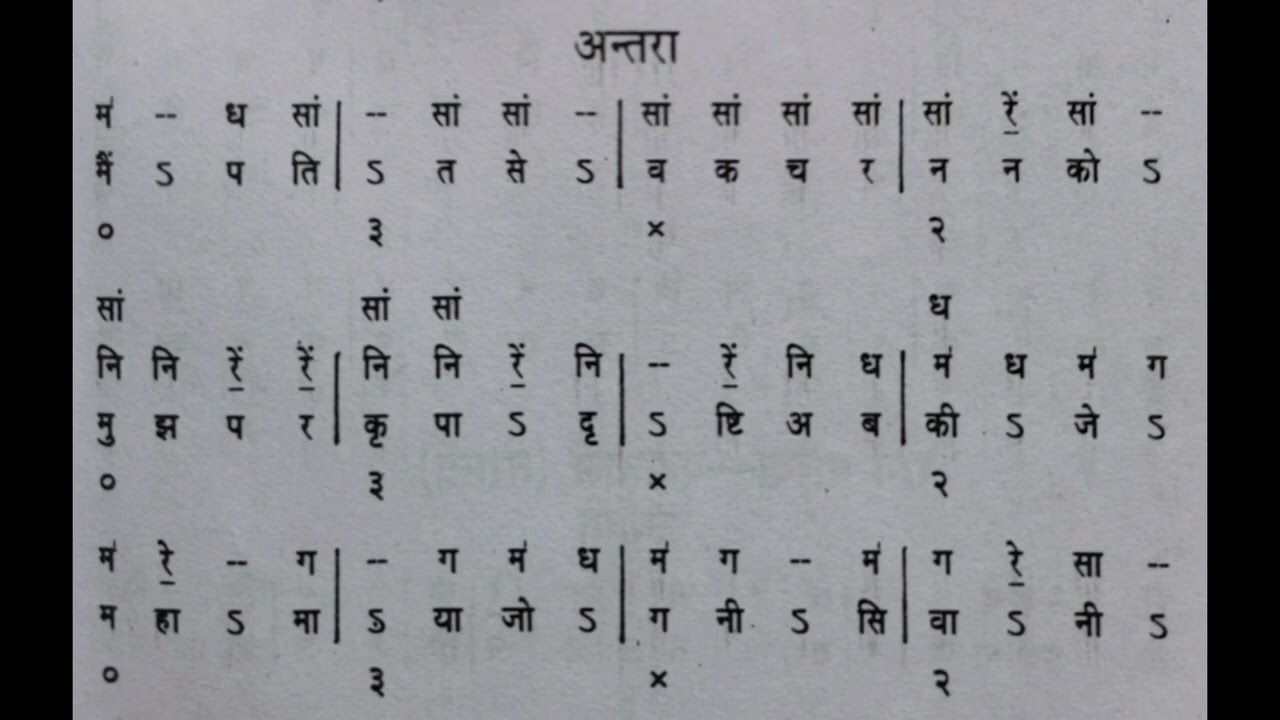 अन्तरा
म॑ -- ध सां | -- सां सां -- | सां सां सां सां | सां रें॒ सां --
मैं ऽ प ति | ऽ त से ऽ | व क च र | न न को ऽ
० ३ × २
सां सां सां ध
नि नि रें॒ रें॒ | नि नि रें॒ नि | -- रें॒ नि ध | म॑ ध म॑ ग
मु झ प र | कृ पा ऽ दृ | ऽ ष्टि अ ब | की ऽ जे ऽ
० ३ × २
म॑ रे॒ -- ग | -- ग म॑ ध | म॑ ग -- म॑ | ग रे॒ सा --
म हा ऽ मा | ऽ या जो ऽ | ग नी ऽ सि | वा ऽ नी ऽ
० ३ × २